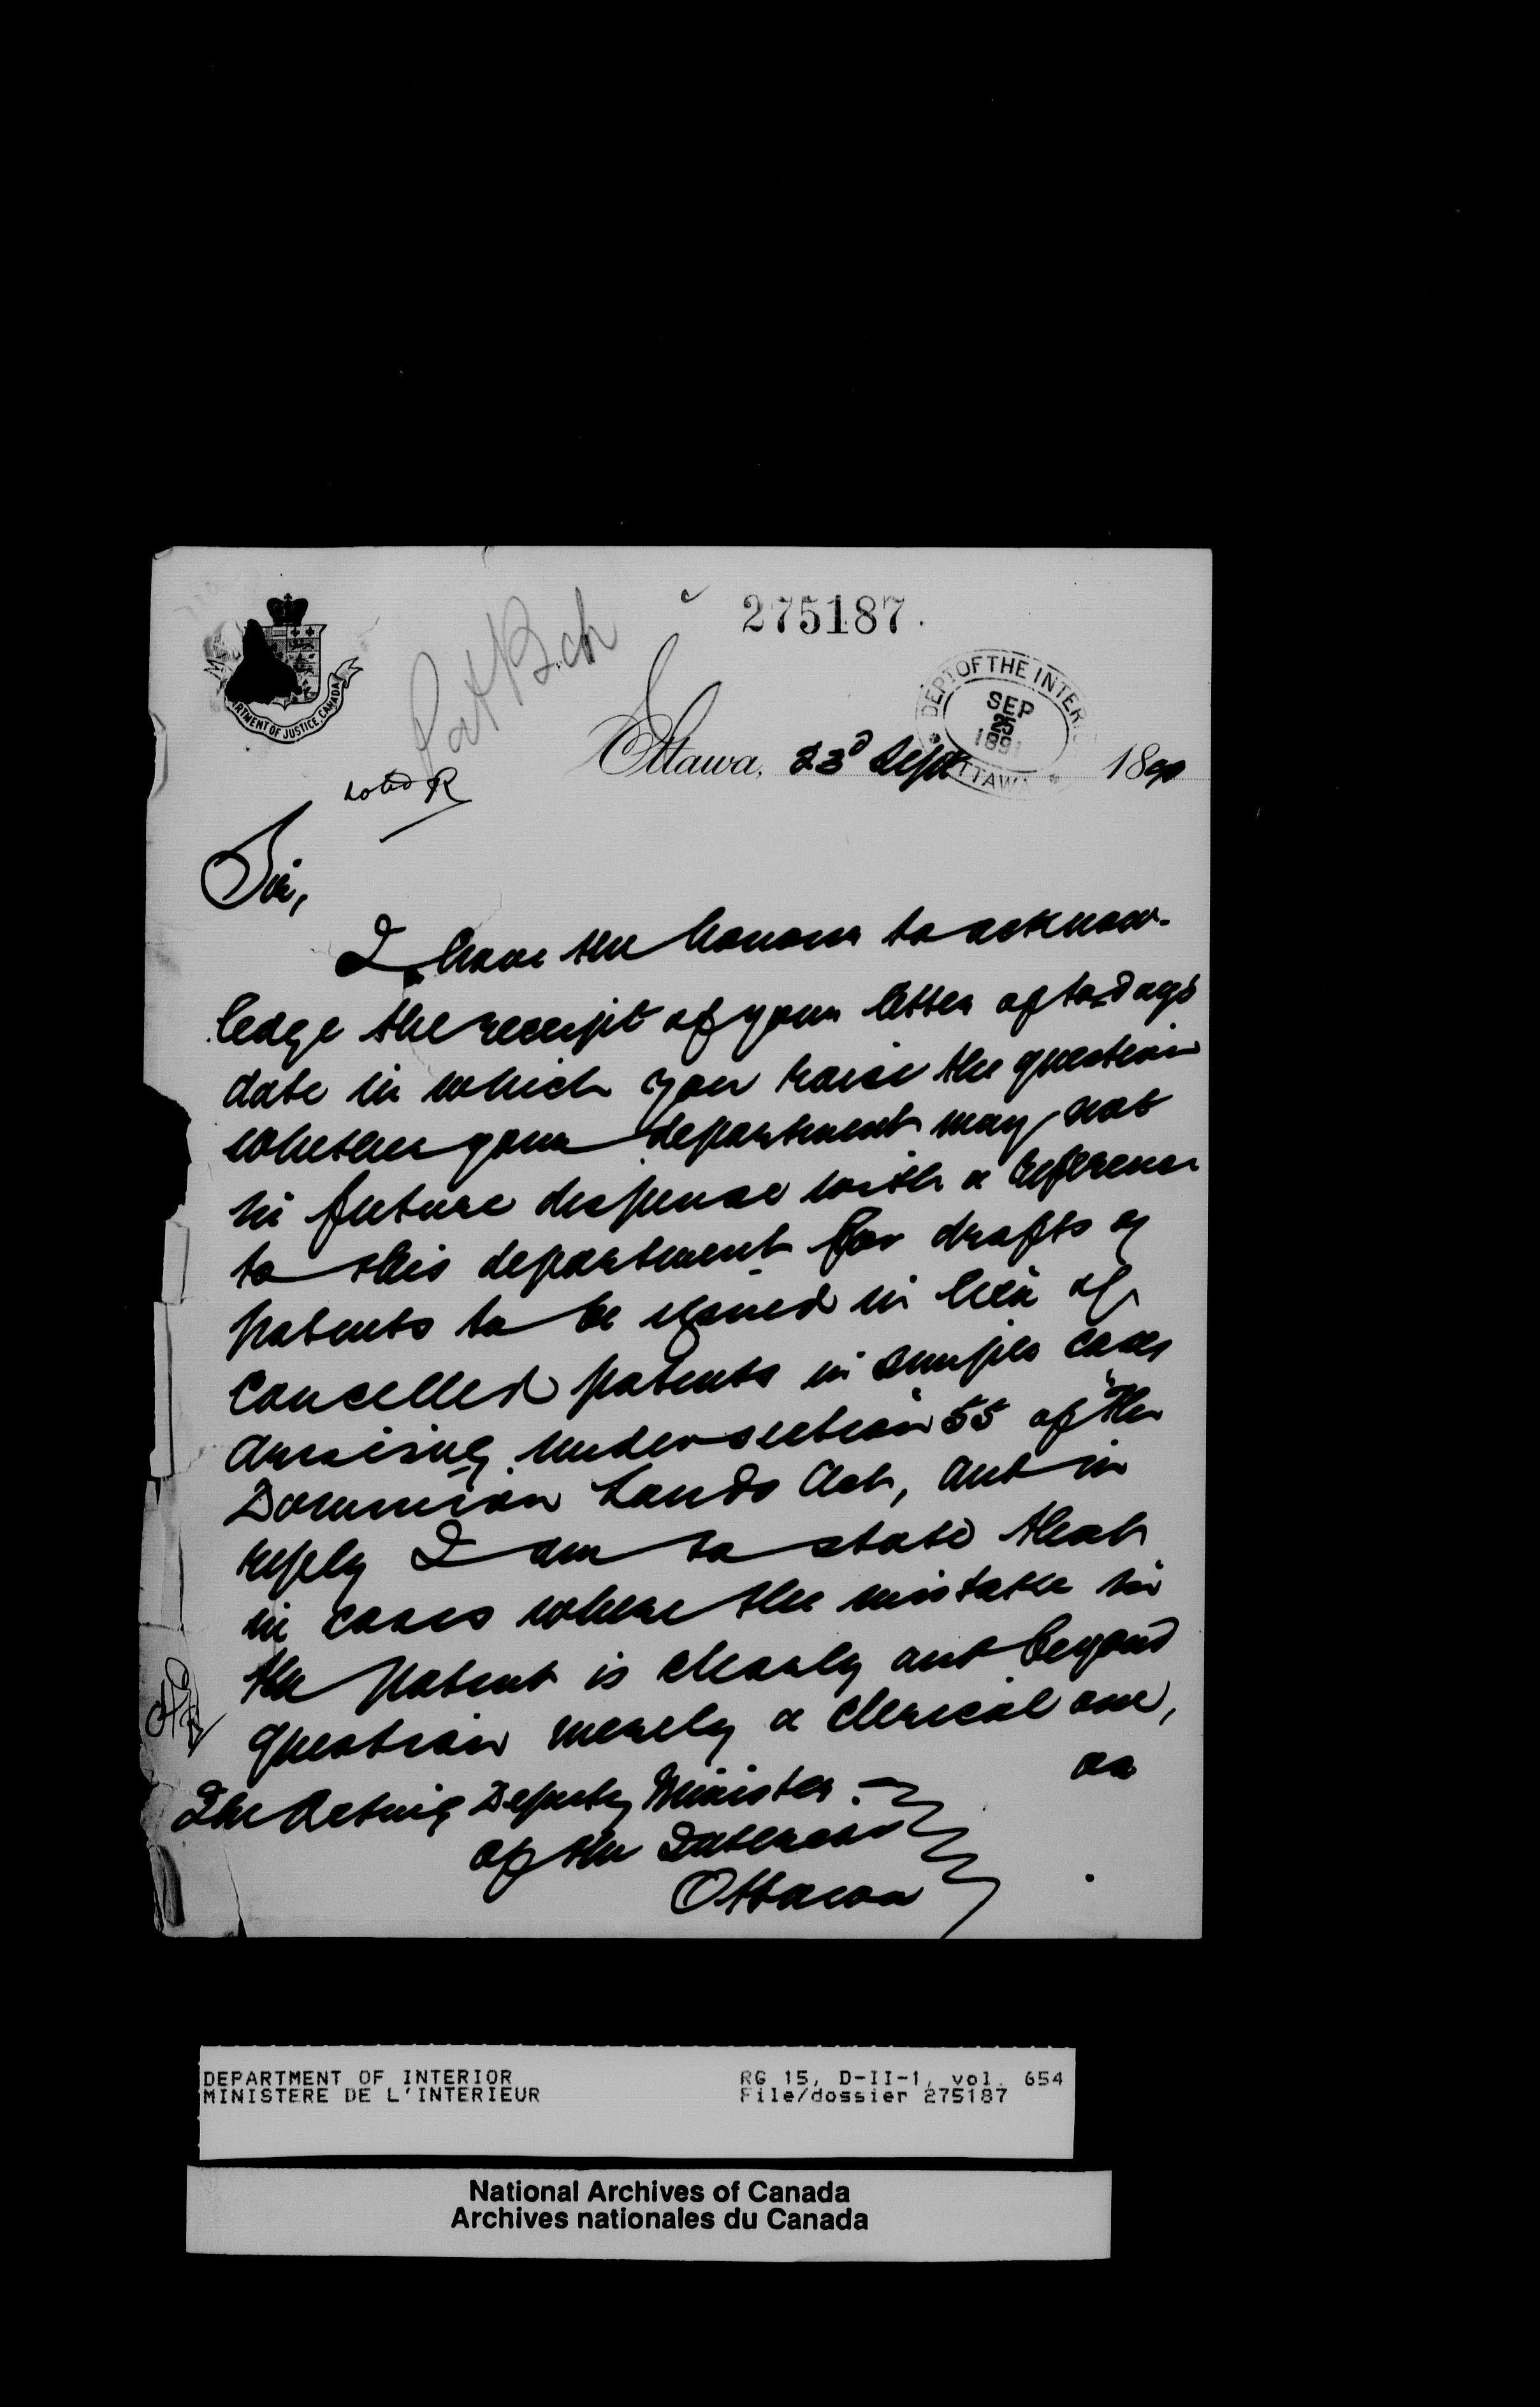 275187.
Pat Bch
DEPT OF THE INTER
SEP
25
1891
OTTAWA
RTMENT OF JUSTICE, CANADA
Ottawa, 23d Sept 1891
noted R
Sir,
I have the honour to acknow-
ledge the receipt of your letter of to-day's
date in which you raise the question
whether your department may not
in future dispense with a reference
to this department for drafts of
patents to be issued in lieu of
cancelled patents in simple cases
arising under section 55 of "The
Dominion Lands Act, and in
reply I am to state that
in cases where the mistake in
the patent is clearly and beyond
question merely a clerical one,
as
The Acting Deputy Minister
of the Interior
Ottawa
DEPARTMENT OF INTERIOR RG 15, D-II-1, vol. 654
MINISTERE DE L'INTERIEUR File/dossier 275187
National Archives of Canada
Archives nationales du Canada